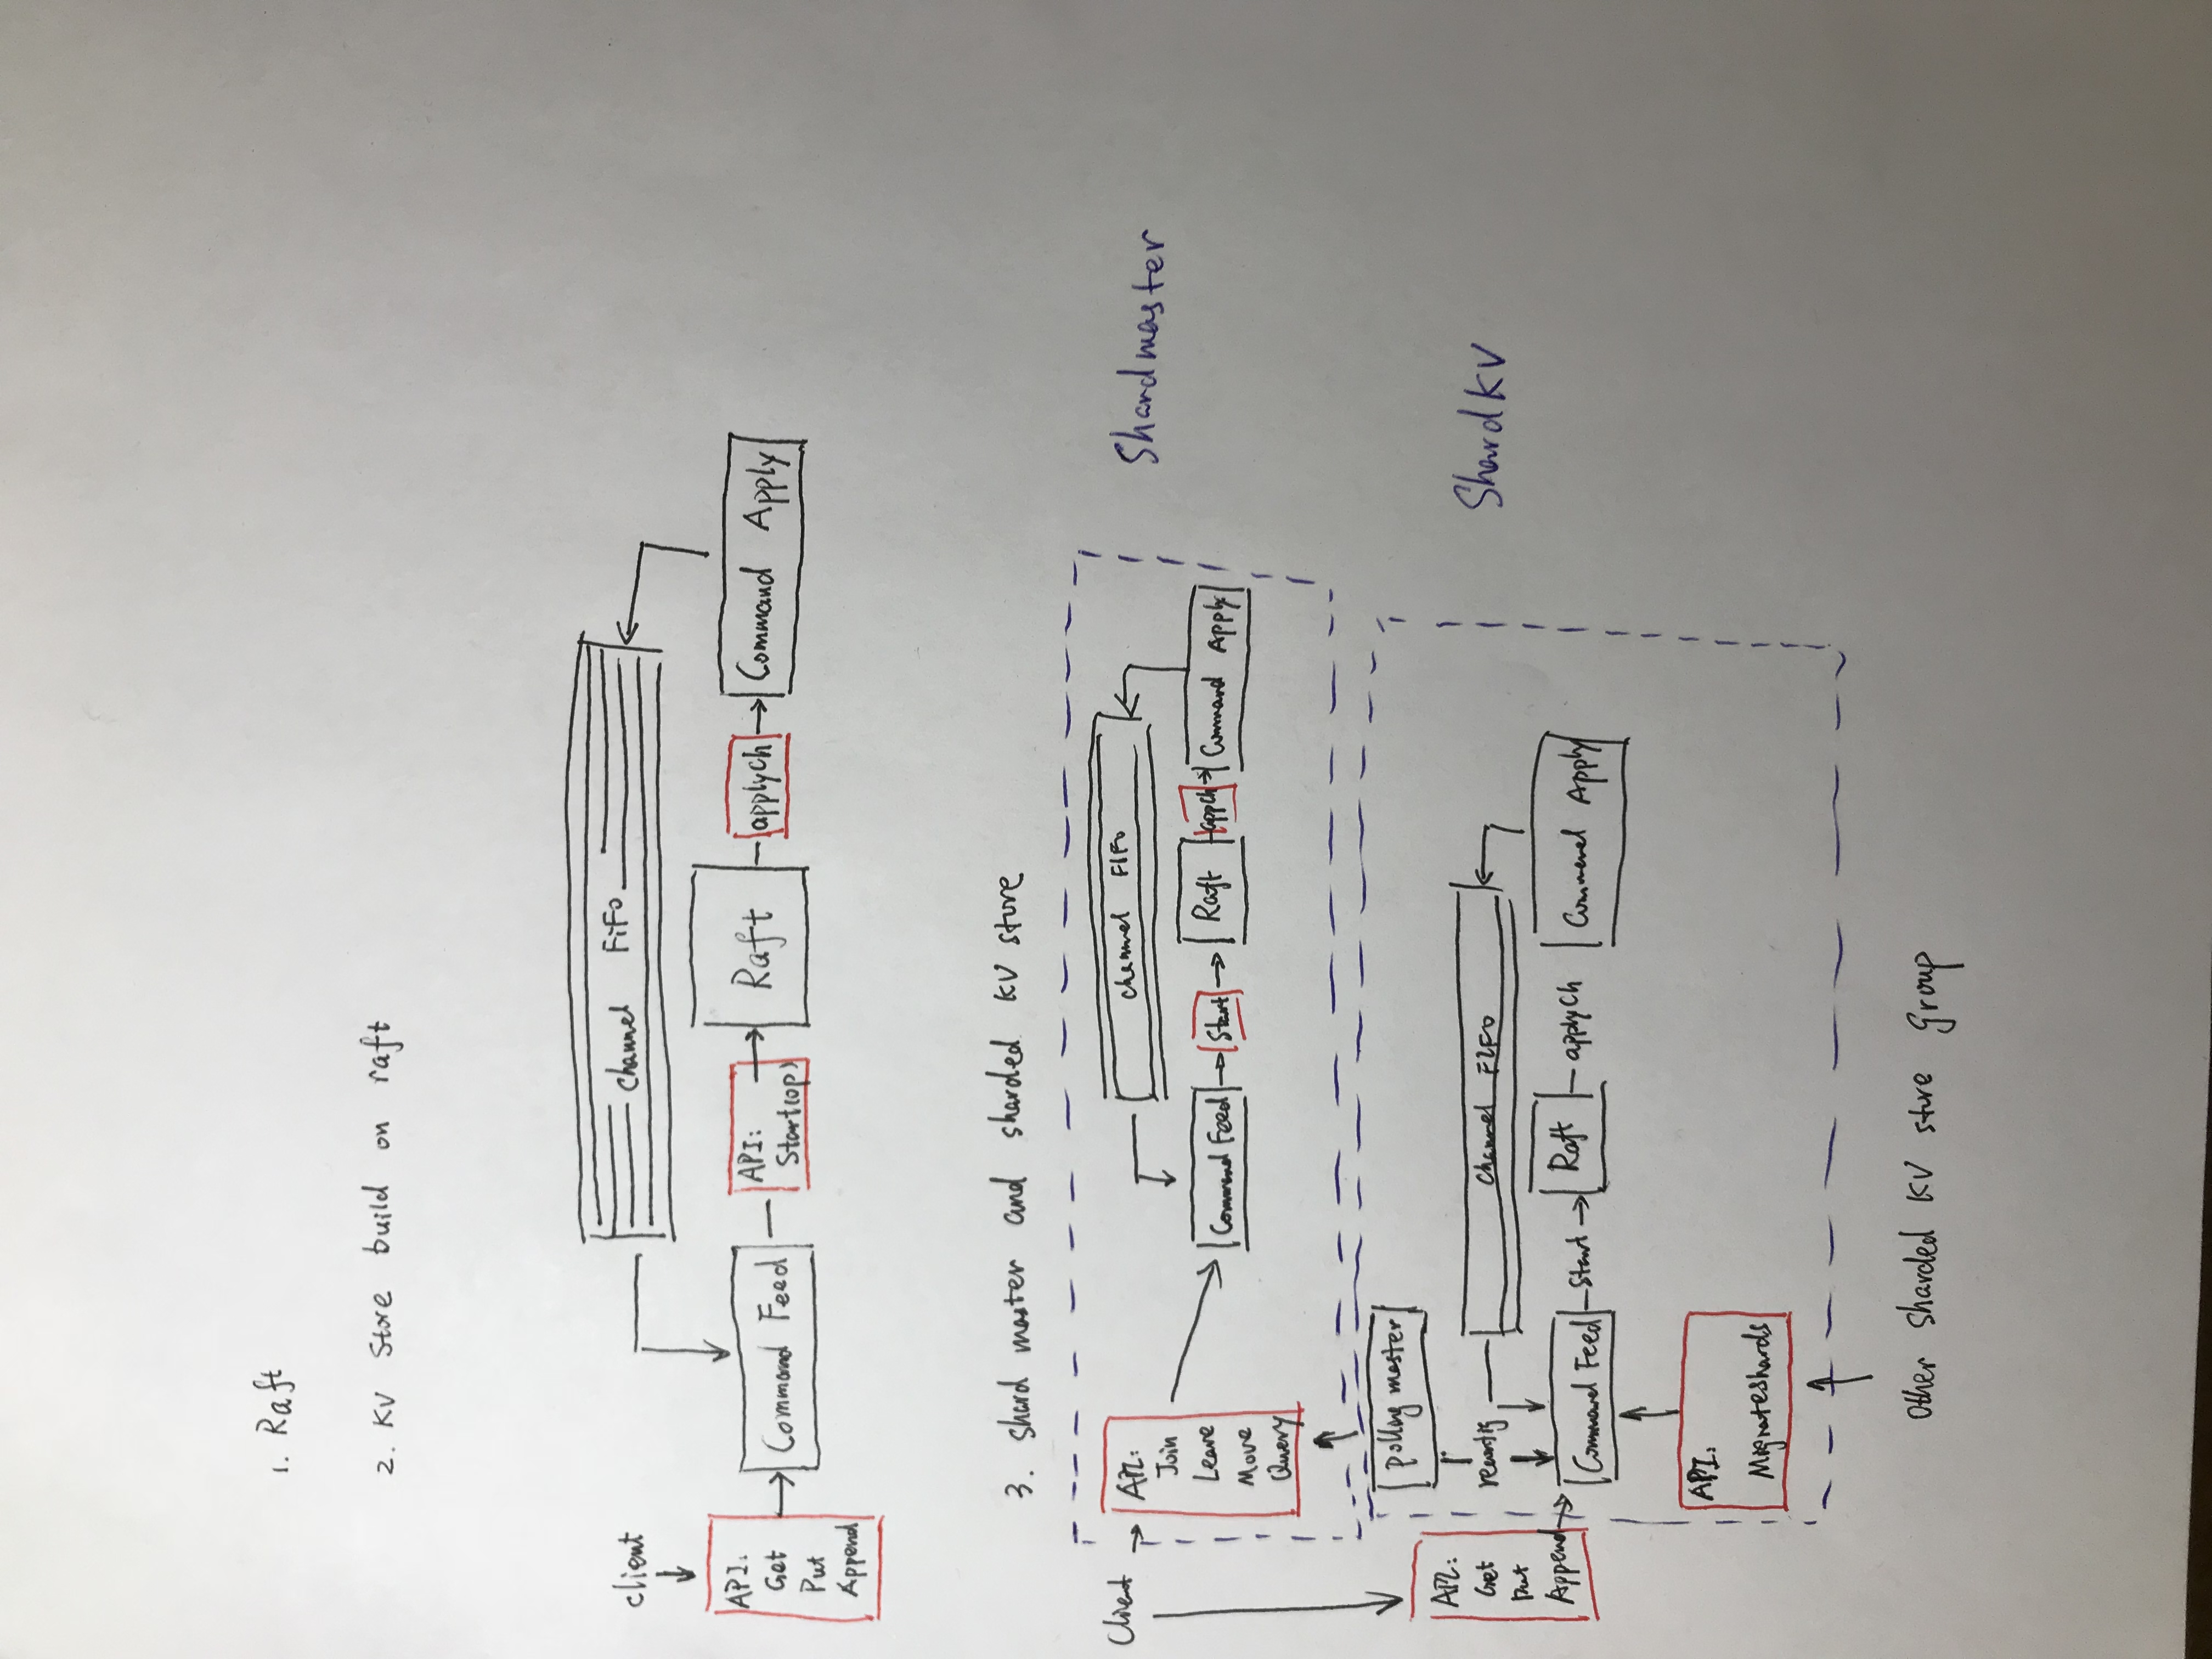 1. Raft
2. KV Store build on raft
Channel FiFo
client
API:
Get
Put
Append
Command Feed
API:
Start(op)
Raft
applyCh
Command Apply
3. Shard master and sharded KV store
Client
API:
Join
Leave
Move
Query
Channel FIFO
Command Feed
Start
Raft
appCh
Command Apply
Shardmaster
polling master
reconfig
API:
Get
Put
Append
Channel FIFO
Command Feed
Start
Raft
applyCh
Command Apply
ShardKV
API:
Migrateshards
Other Sharded KV store Group